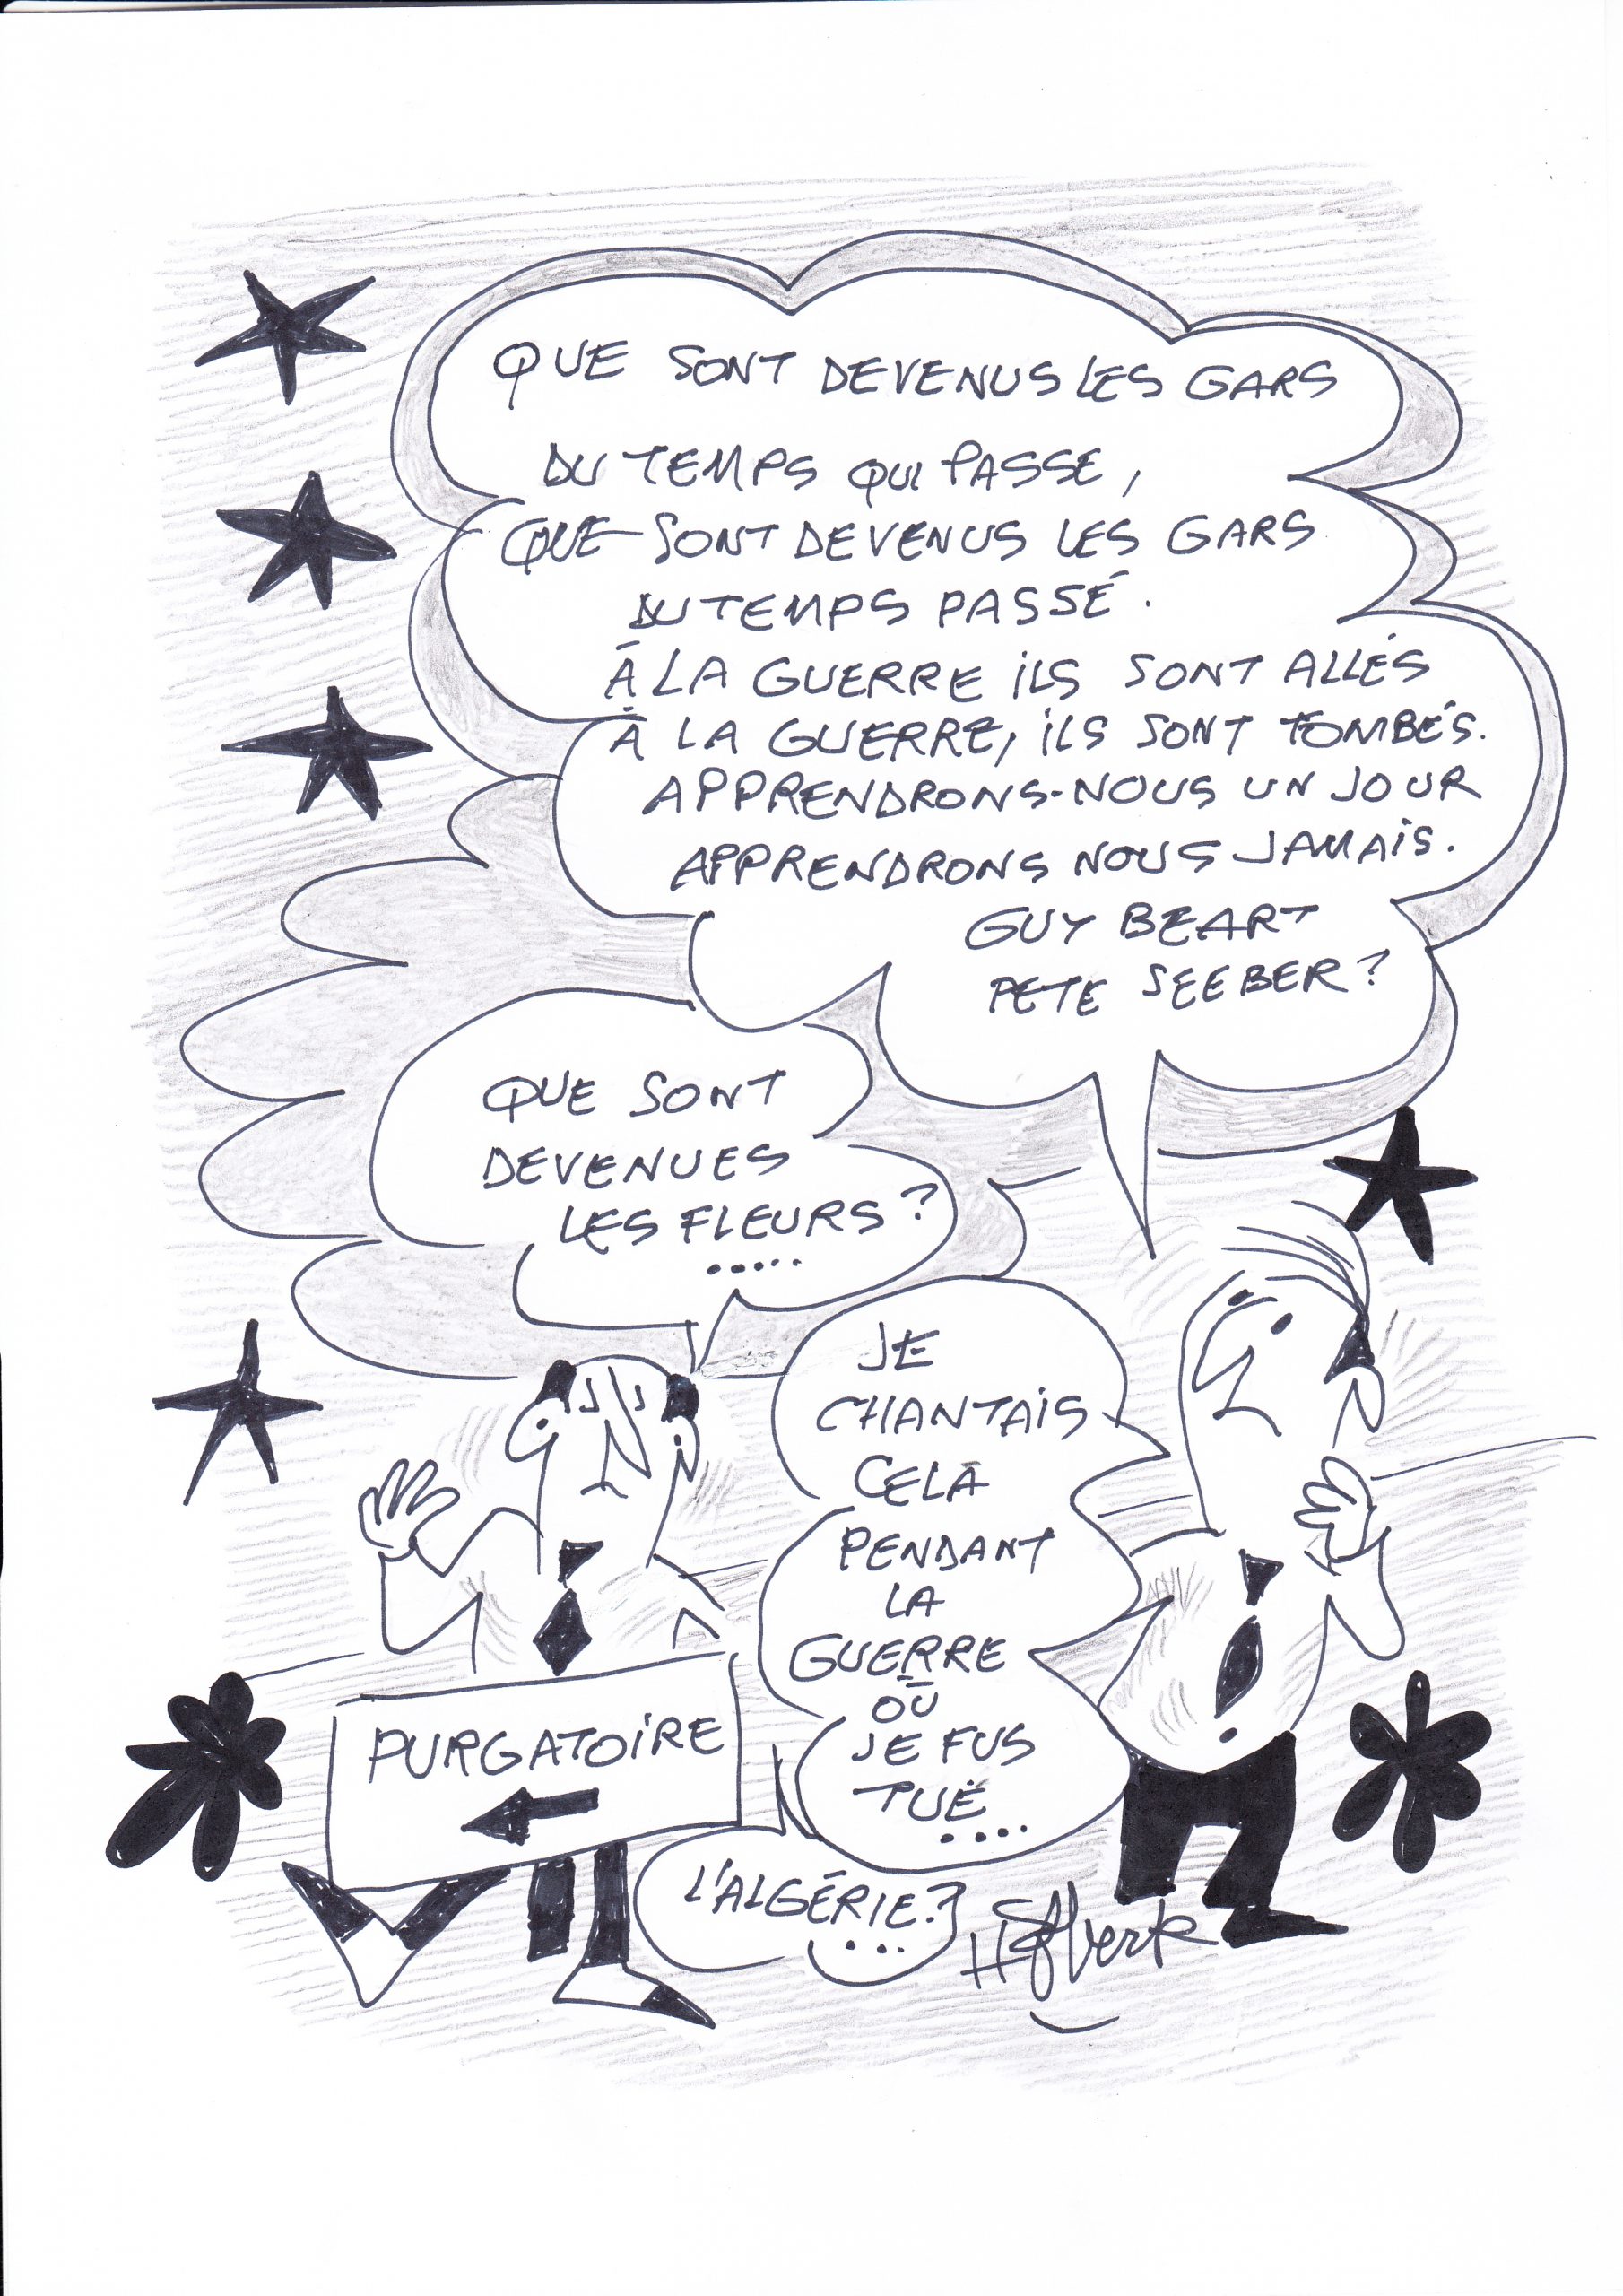 QUE SONT DEVENUS LES GARS
DU TEMPS QUI PASSE,
QUE SONT DEVENUS LES GARS
DU TEMPS PASSÉ.
À LA GUERRE ILS SONT ALLÉS
À LA GUERRE, ILS SONT TOMBÉS.
APPRENDRONS-NOUS UN JOUR
APPRENDRONS NOUS JAMAIS.
GUY BEART
PETE SEEBER?
QUE SONT
DEVENUES
LES FLEURS?
.....
JE
CHANTAIS
CELA
PENDANT
LA
GUERRE
OÙ
JE FUS
TUÉ
....
PURGATOIRE
L'ALGÉRIE?
...